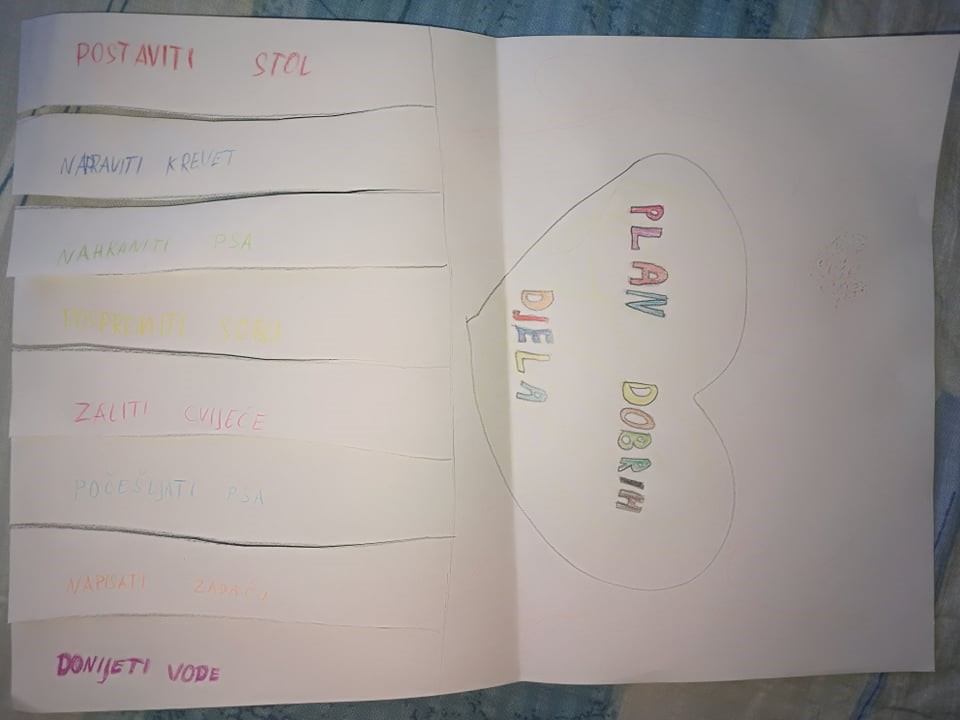 PLAN DOBRIH
DJELA
POSTAVITI STOL
NAPRAVITI KREVET
NAHRANITI PSA
POSPREMITI SOBU
ZALITI CVIJEĆE
POČEŠLJATI PSA
NAPISATI ZADAĆU
DONIJETI VODE